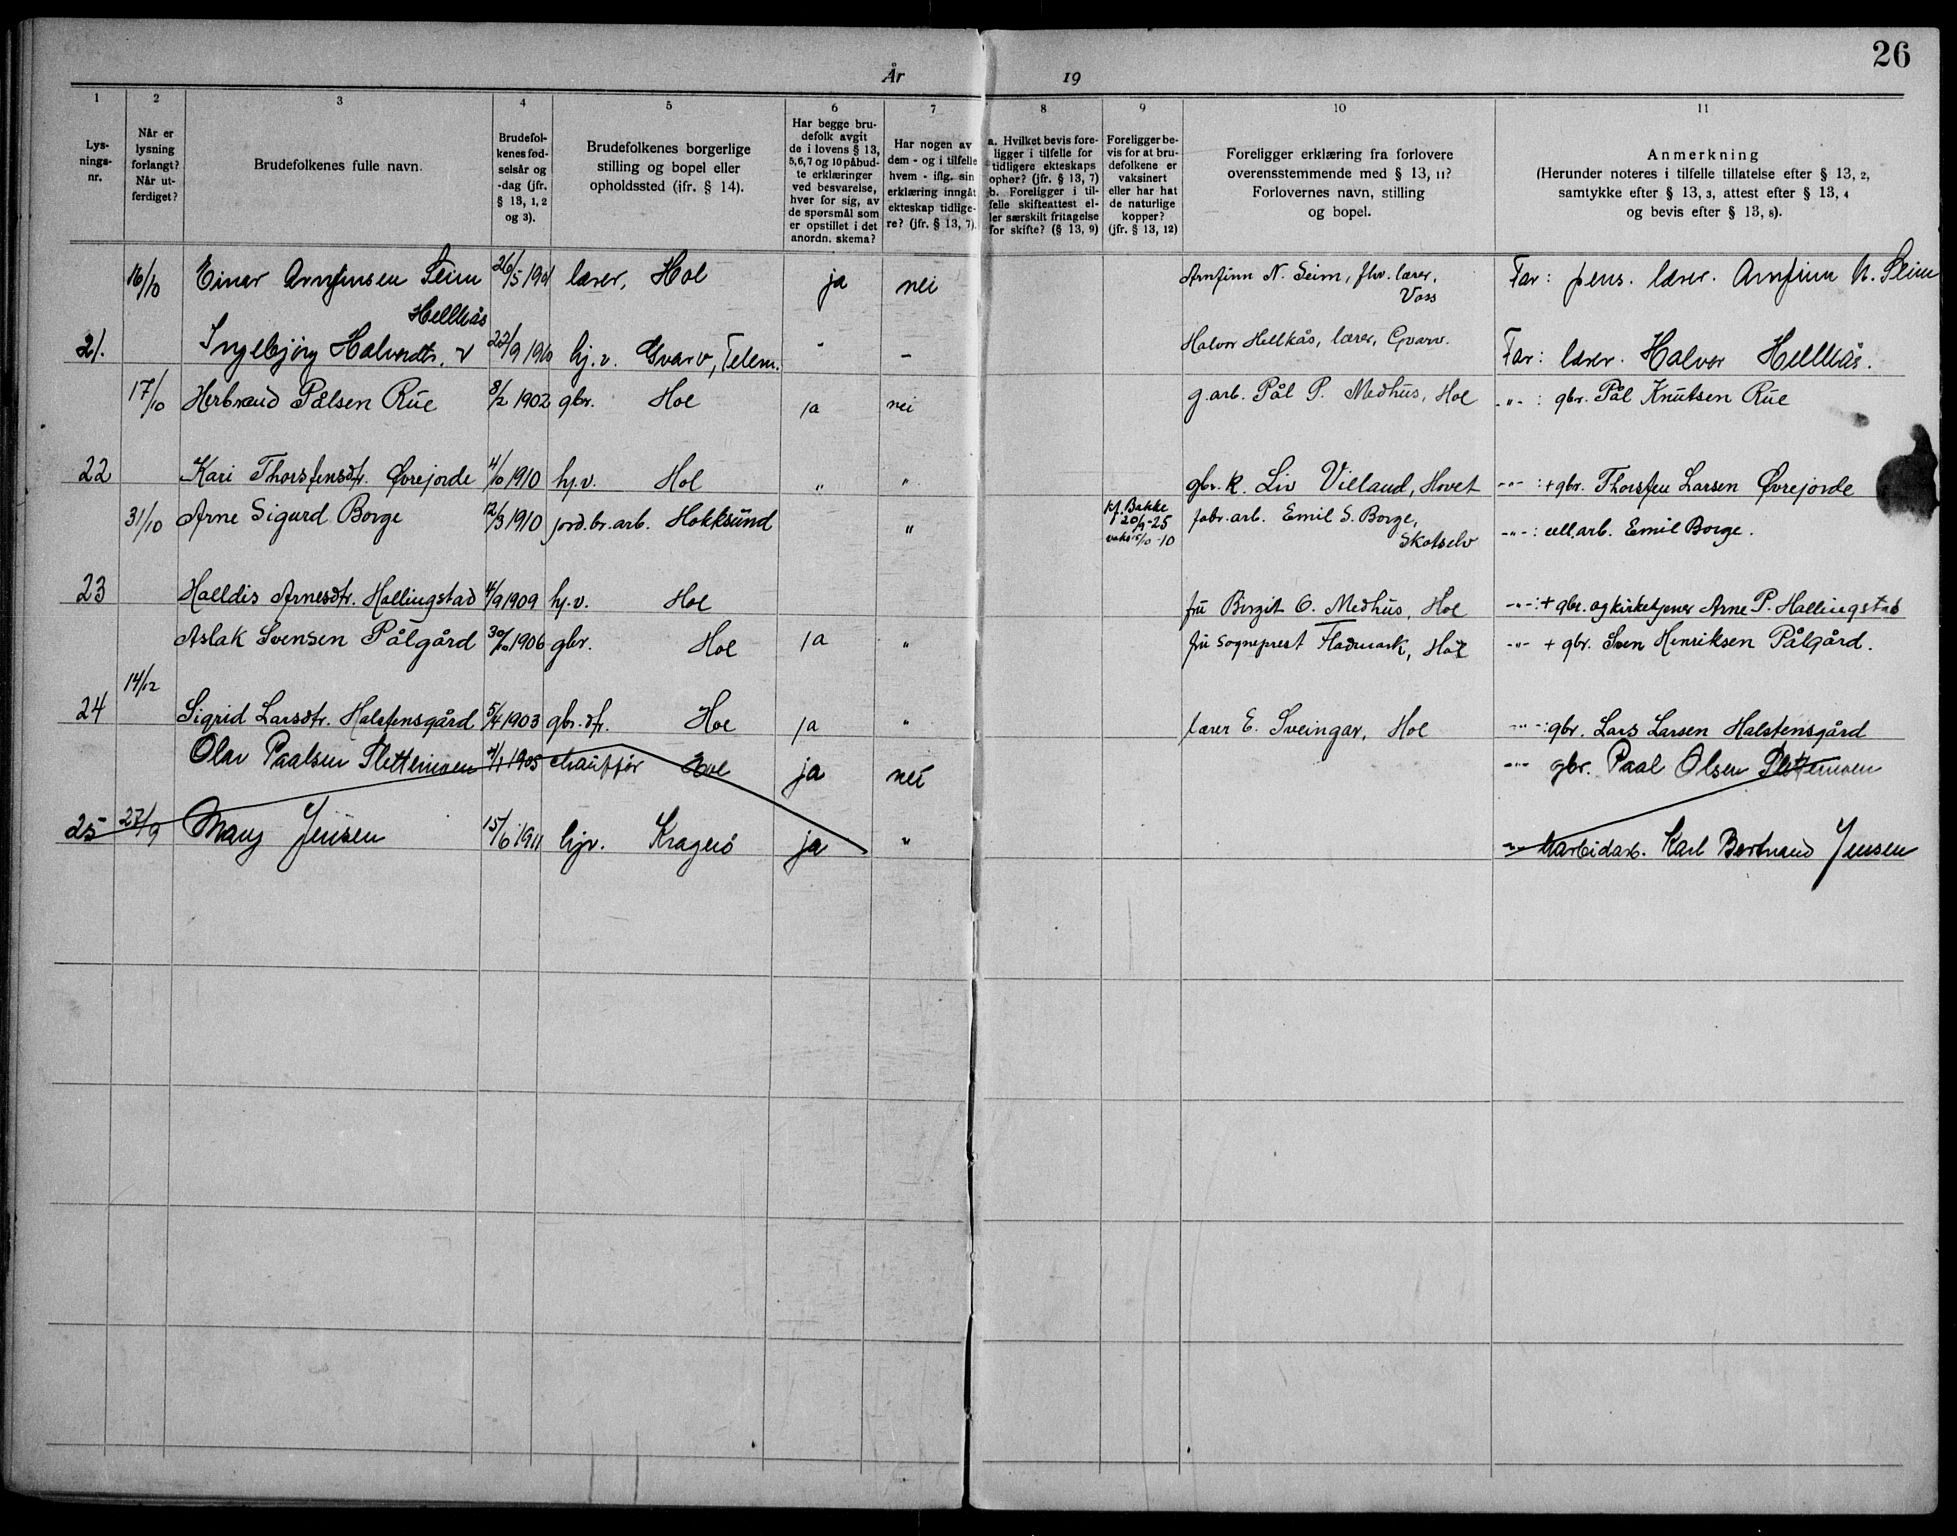 26
År 19
1 2 3 4 5 6 7 8 9 10 11
Lys-
nings-
nr.
Når er
lysning
forlangt?
Når ut-
ferdiget?
Brudefolkenes fulle navn.
Brudefol-
kenes fød-
selsår og
-dag (jfr.
§ 13, 1, 2
og 3).
Brudefolkenes borgerlige
stilling og bopel eller
opholdssted (jfr. § 14).
Har begge bru-
defolk avgit
de i lovens § 13,
5, 6, 7 og 10 påbud-
te erklæringer
ved besvarelse,
hver for sig, av
de spørsmål som
er opstillet i det
anordn. skema?
Har nogen av
dem - og i tilfelle
hvem - iflg. sin
erklæring inngåt
ekteskap tidlige-
re? (jfr. § 13, 7).
a. Hvilket bevis fore-
ligger i tilfelle for
tidligere ekteskaps
ophør? (jfr. § 13, 7)
b. Foreligger i til-
felle skifteattest el-
ler særskilt fritagelse
for skifte? (§ 13, 9)
Foreligger be-
vis for at bru-
defolkene er
vaksinert
eller har hat
de naturlige
kopper?
(jfr. § 13, 12)
Foreligger erklæring fra forlovere
overensstemmende med § 13, 11?
Forlovernes navn, stilling
og bopel.
Anmerkning
(Herunder noteres i tilfelle tillatelse efter § 13, 2,
samtykke efter § 13, 3, attest efter § 13, 4
og bevis efter § 13, 8).
16/10 Einar Arnfinsen Seim 26/5 1901 lærer, Hol ja nei Arnfinn N. Seim, fhv. lærer, Voss Far: pens. lærer. Arnfinn N. Seim
Hellkås
21. Ingebjørg Halvordtr. v 23/9 1910 hj.v. Gvarv, Telem. " – Halvor Hellkås, lærer, Gvarv. Far: lærer. Halvor Hellkås.
17/10 Herbrand Pålsen Rue 8/2 1902 gbr. Hol ja nei g.arb. Pål P. Medhus, Hol -"- : gbr. Pål Knutsen Rue
22 Kari Thorstensdtr. Øvrejorde 4/10 1910 hj.v. Hol " " gbr. k. Liv Villand, Hovet -"- : + gbr. Thorsten Larsen Øvrejorde
31/10 Arne Sigurd Borge 12/3 1910 jord.br.arb. Hokksund " kf. Bakke
20/9-25
vaks 15/10-10
fabr.arb. Emil S. Borge,
Skotselv
-"- : cell.arb. Emil Borge.
23 Halldis Arnesdtr. Hallingstad 4/9 1909 hj.v. Hol fru Birgit O. Medhus, Hol -"- : + gbr. og kirketjener Arne P. Hallingstad
Aslak Svensen Pålgård 30/10 1906 gbr. Hol ja " fru sogneprest Fladmark, Hol -"- + gbr. Sven Henriksen Pålgård.
14/12
24 Sigrid Larsdtr. Halstensgård 5/4 1903 gbr. dtr. Hol ja " lærer E. Sveingar, Hol -"- : gbr. Lars Larsen Halstensgård
Olav Paalsen Slettemoen 4/1 1905 chauffør Hol ja nei -"- gbr. Paal Olsen Slettemoen
25 27/9 Mary Jensen 15/6 1911 hjv. Kragerø ja " -"- havarbidarb. Karl Bertrand Jensen